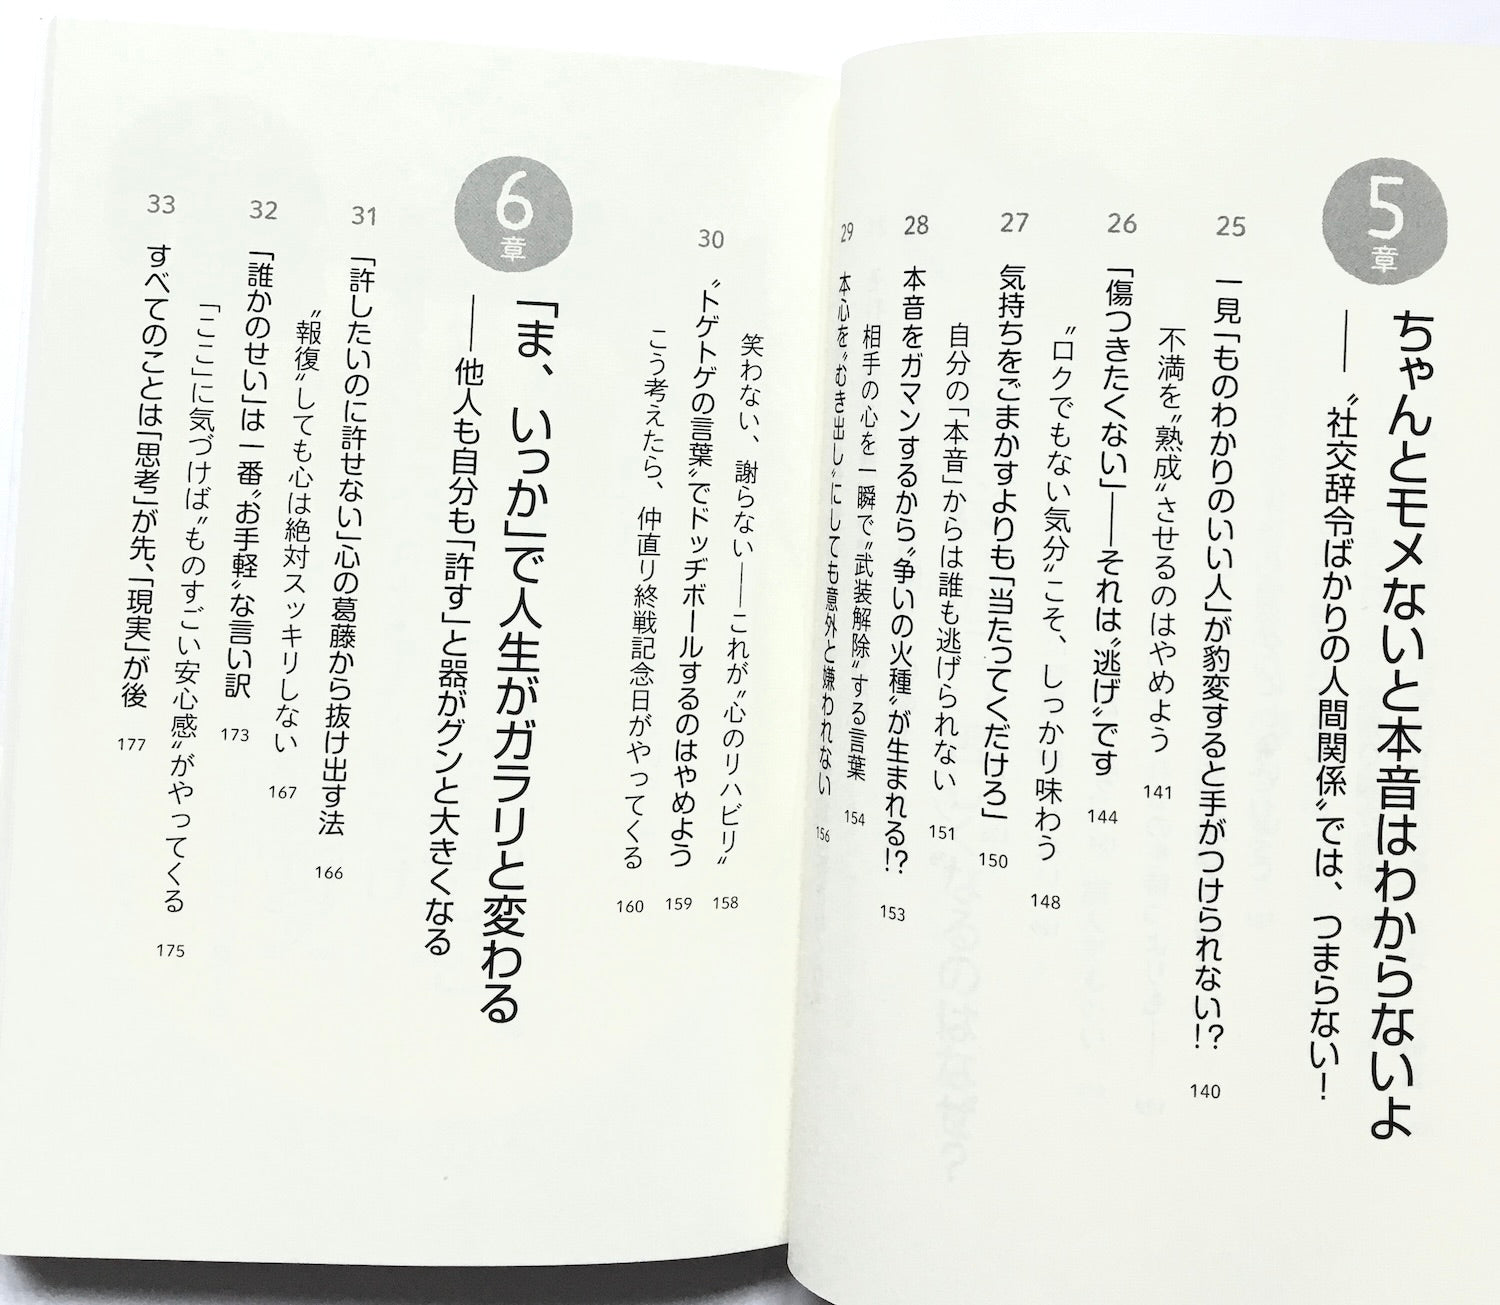 5章
ちゃんとモメないと本音はわからないよ
――〝社交辞令ばかりの人間関係〟では、つまらない!
25 一見「ものわかりのいい人」が豹変すると手がつけられない!? 140
不満を〝熟成〟させるのはやめよう 141
26 「傷つきたくない」――それは〝逃げ〟です 144
〝ロクでもない気分〟こそ、しっかり味わう 148
27 気持ちをごまかすよりも「当たってくだけろ」 150
自分の「本音」からは誰も逃げられない 151
28 本音をガマンするから〝争いの火種〟が生まれる!? 153
相手の心を一瞬で〝武装解除〟する言葉 154
29 本心を〝むき出し〟にしても意外と嫌われない 156
笑わない、謝らない――これが〝心のリハビリ〟 158
30 〝トゲトゲの言葉〟でドッヂボールするのはやめよう 159
こう考えたら、仲直り終戦記念日がやってくる 160
6章
「ま、いっか」で人生がガラリと変わる
――他人も自分も「許す」と器がグンと大きくなる
31 「許したいのに許せない」心の葛藤から抜け出す法 166
〝報復〟しても心は絶対スッキリしない 167
32 「誰かのせい」は一番〝お手軽〟な言い訳 173
「ここ」に気づけば〝ものすごい安心感〟がやってくる 175
33 すべてのことは「思考」が先、「現実」が後 177